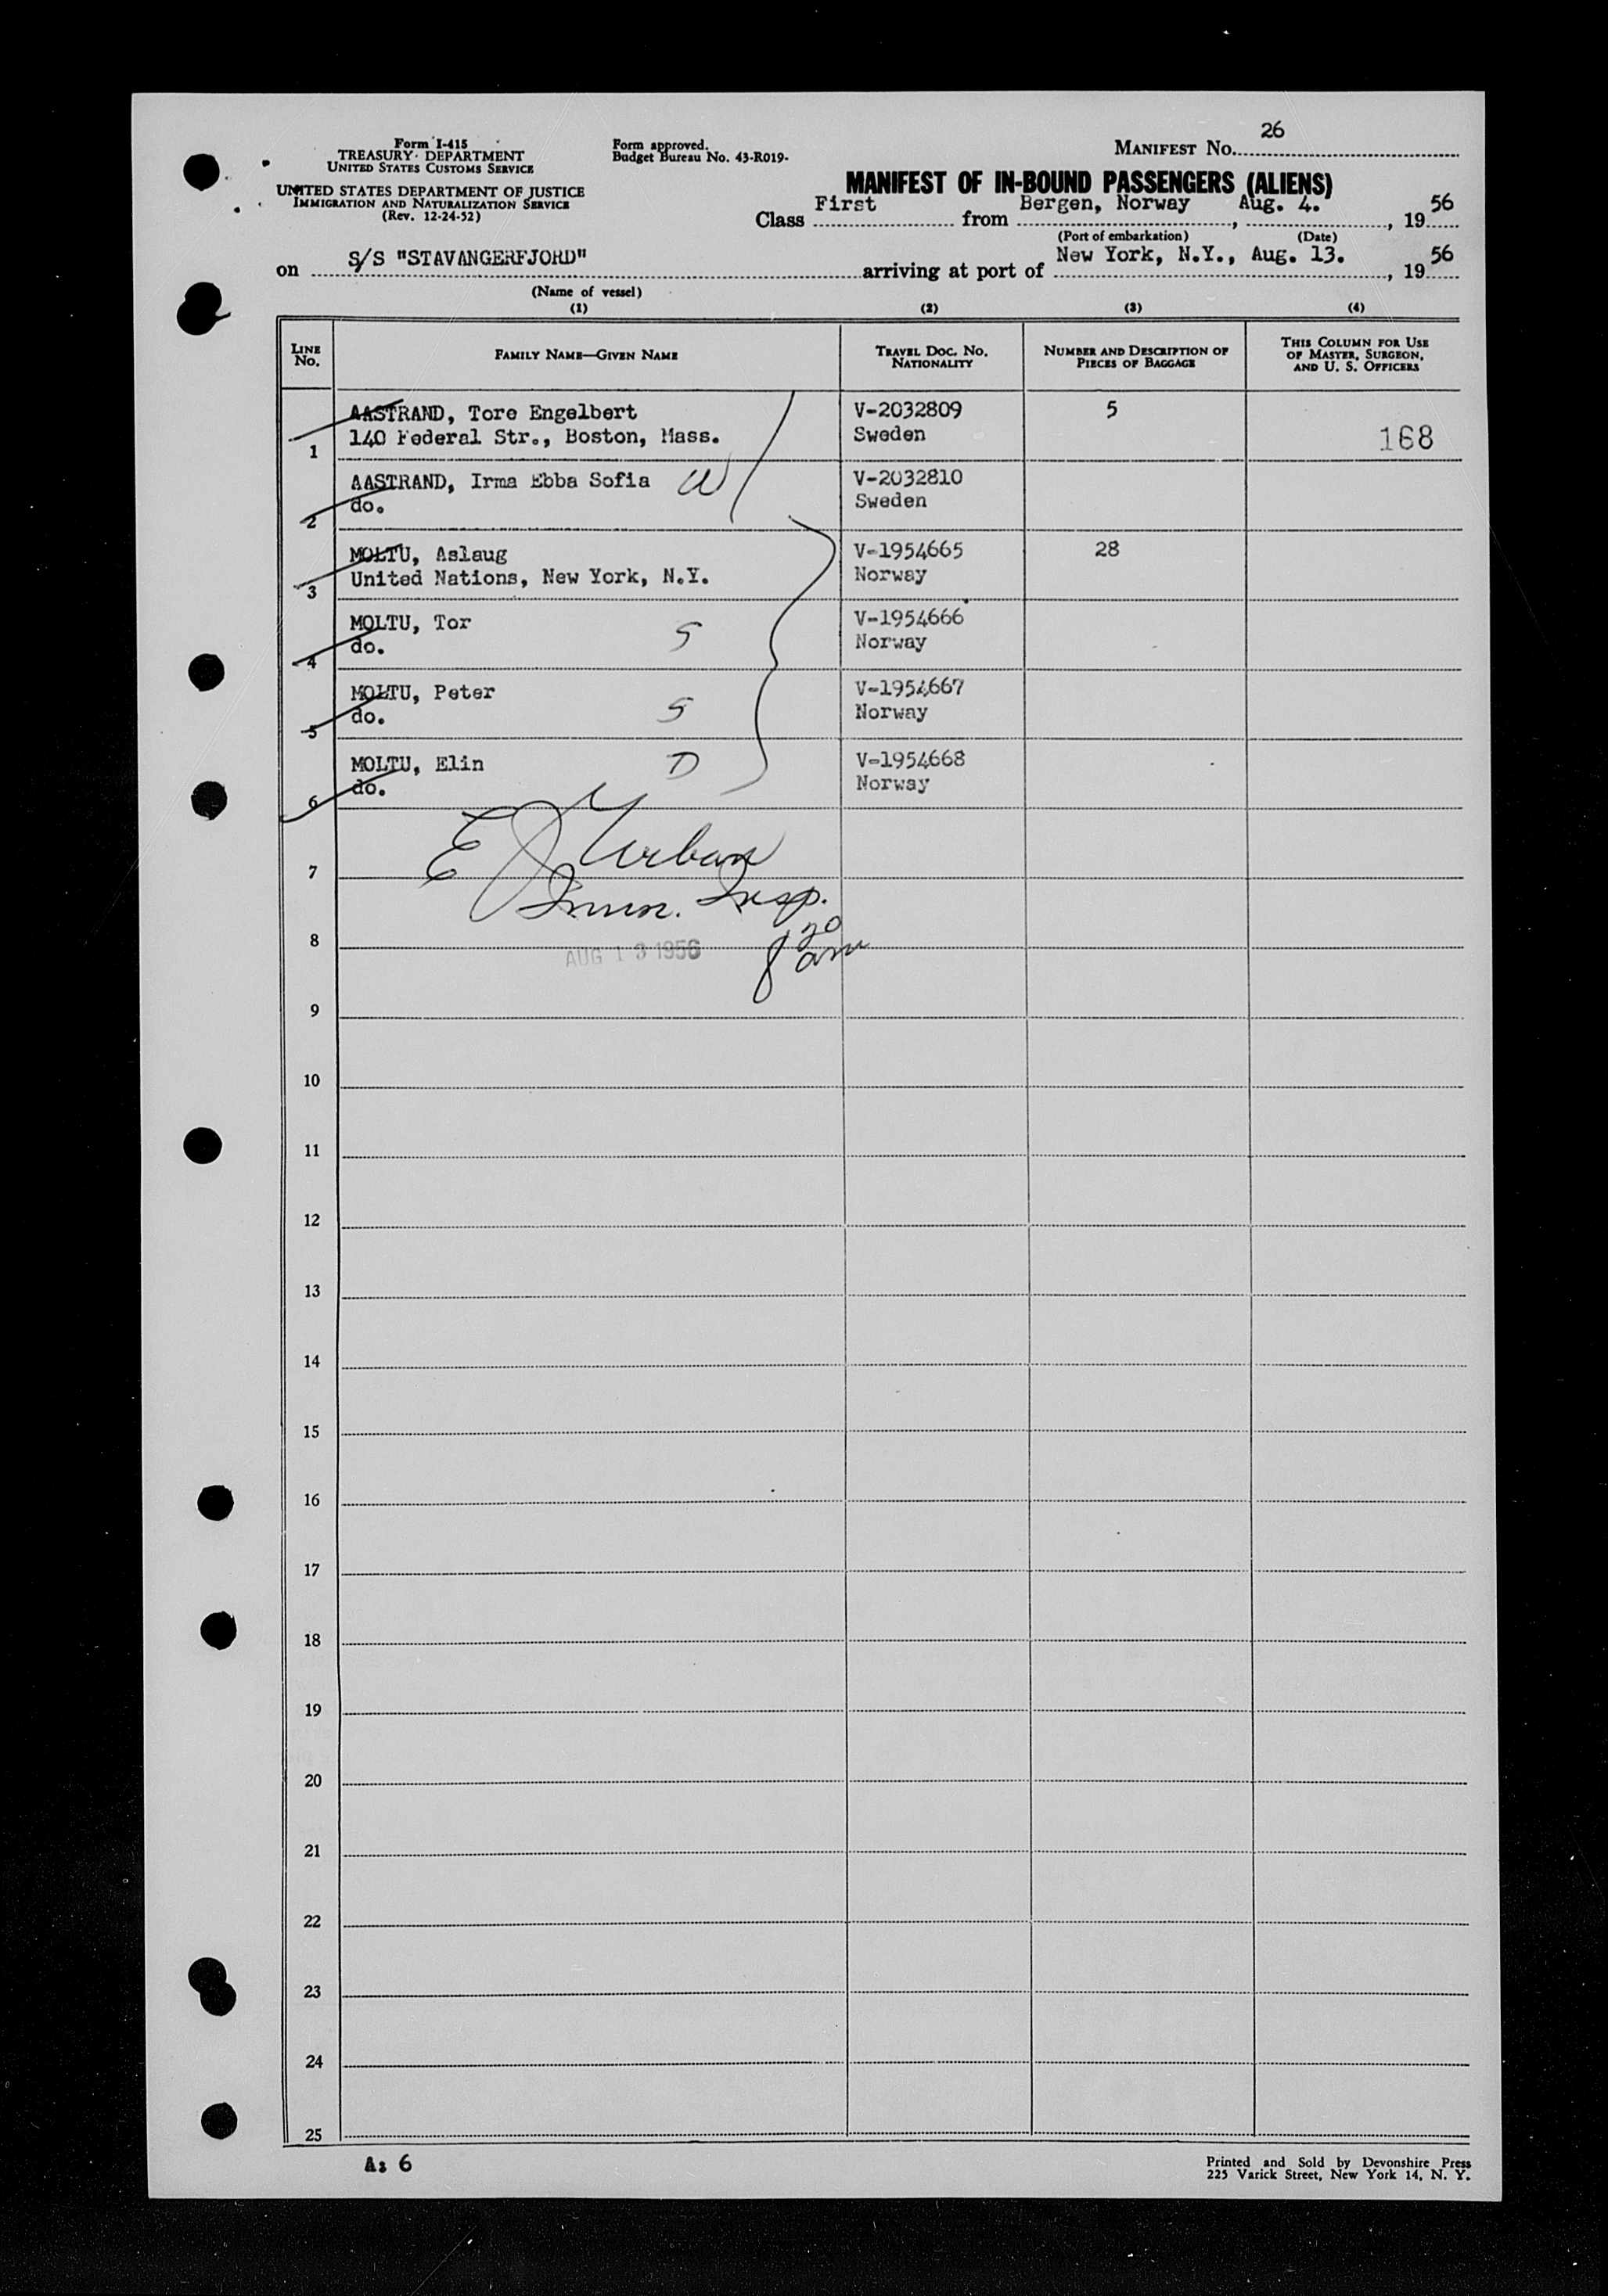 Form I-415
TREASURY DEPARTMENT
UNITED STATES CUSTOMS SERVICE
UNITED STATES DEPARTMENT OF JUSTICE
IMMIGRATION AND NATURALIZATION SERVICE
(Rev. 12-24-52)
Form approved.
Budget Bureau No. 43-R019-
MANIFEST No. 26
MANIFEST OF IN-BOUND PASSENGERS (ALIENS)
Class First from Bergen, Norway, Aug. 4., 1956
(Port of embarkation) (Date)
on S/S "STAVANGERFJORD" arriving at port of New York, N.Y., Aug. 13., 1956
(Name of vessel)
(1) (2) (3) (4)
LINE No. FAMILY NAME—GIVEN NAME TRAVEL DOC. No. NATIONALITY NUMBER AND DESCRIPTION OF PIECES OF BAGGAGE THIS COLUMN FOR USE OF MASTER, SURGEON, AND U. S. OFFICERS
AASTRAND, Tore Engelbert V-2032809 5
1 140 Federal Str., Boston, Mass. Sweden 168
AASTRAND, Irma Ebba Sofia W V-2032810
2 do. Sweden
MOLTU, Aslaug V-1954665 28
3 United Nations, New York, N.Y. Norway
MOLTU, Tor S V-1954666
4 do. Norway
MOLTU, Peter S V-1954667
5 do. Norway
MOLTU, Elin D V-1954668
6 do. Norway
E J Urban
7
Imm. Insp.
8
AUG 13 1956 8 30 am
9
10
11
12
13
14
15
16
17
18
19
20
21
22
23
24
25
A: 6
Printed and Sold by Devonshire Press
225 Varick Street, New York 14, N. Y.